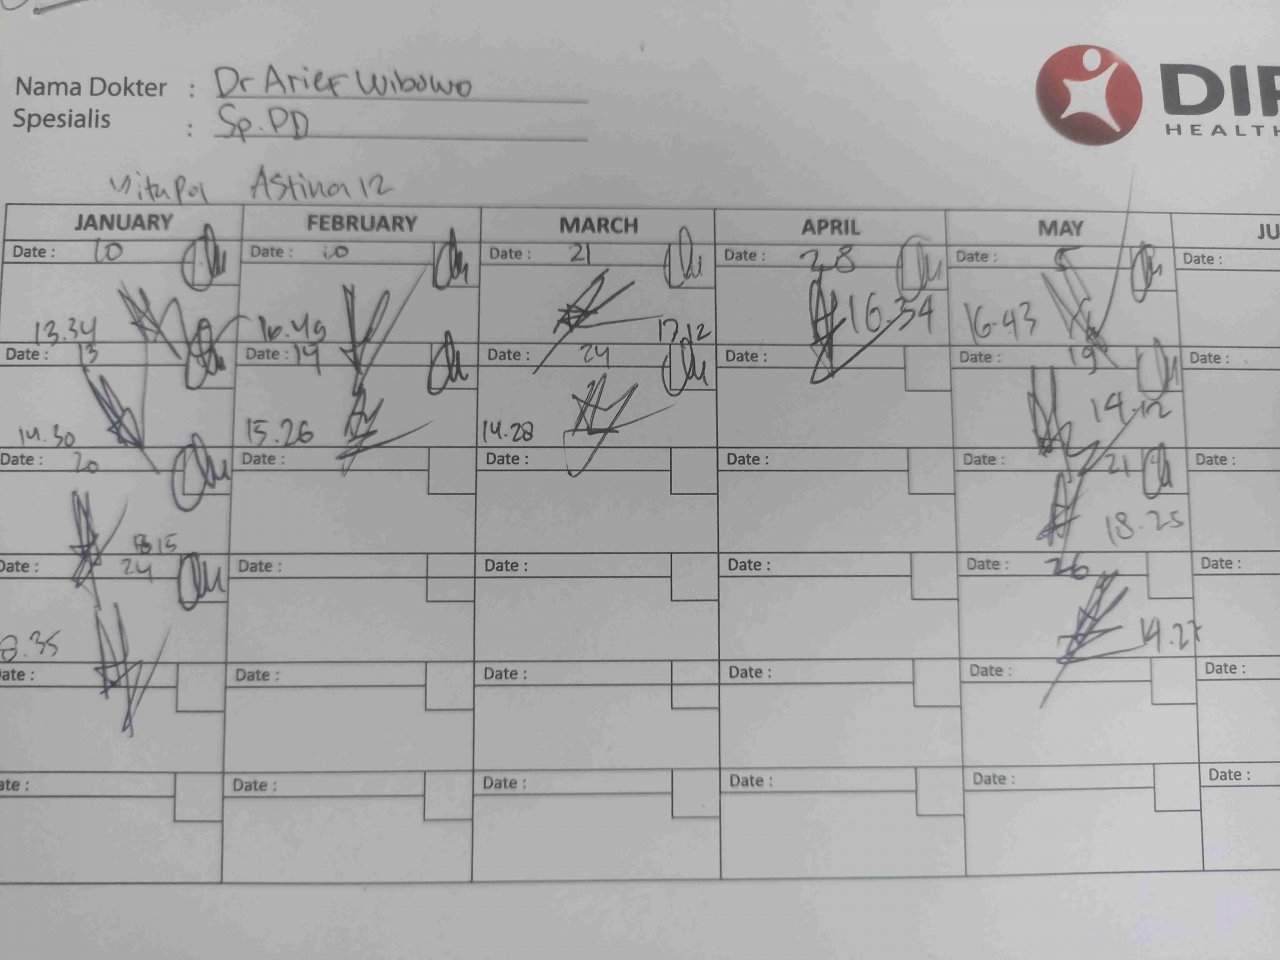 Nama Dokter : Dr Arief Wibowo
Spesialis : Sp.PD
Vitapol Astina 12
DIP
HEALTH
JANUARY FEBRUARY MARCH APRIL MAY JU
Date : 10 Date : 10 Date : 21 Date : 28 Date : 5 Date :
13.34 16.49 17.12 16.34 16.43
Date : 13 Date : 19 Date : 24 Date : Date : 19 Date :
14.30 15.26 14.28 14.12
Date : 20 Date : Date : Date : Date : 21 Date :
18.25
Date : 24 Date : Date : Date : Date : 26 Date :
8.35 14.27
ate : Date : Date : Date : Date : Date :
ate : Date : Date : Date : Date : Date :